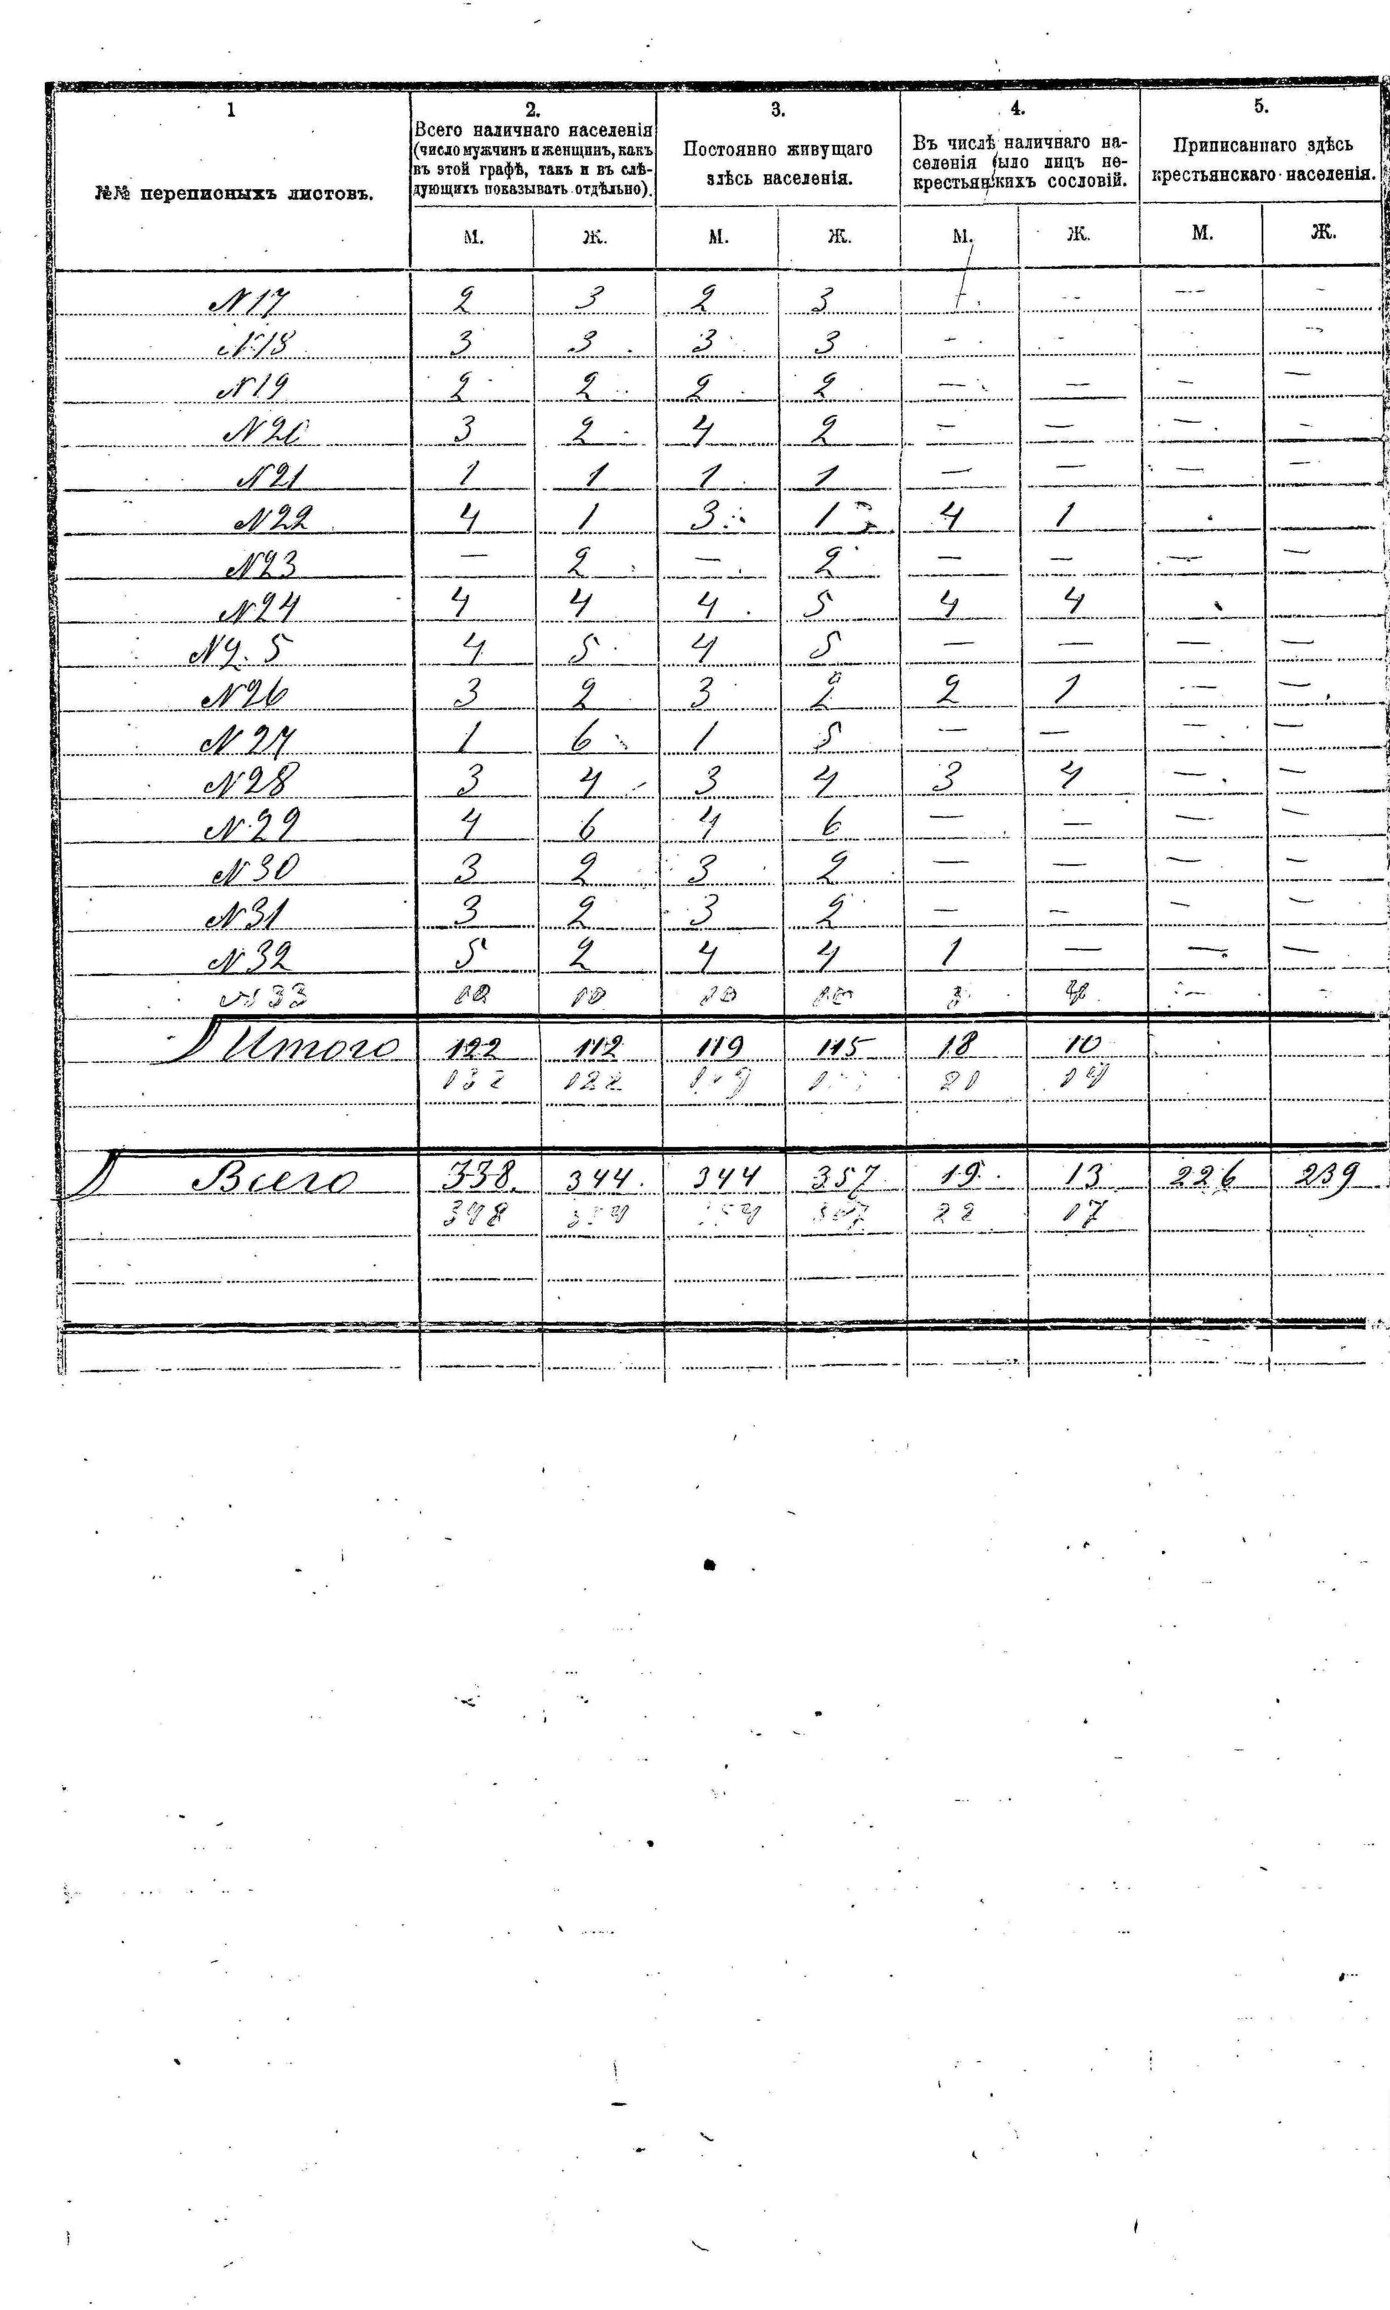 1 2. 3. 4. 5.
№№ переписныхъ листовъ.
Всего наличнаго населенія
(число мужчинъ и женщинъ, какъ
въ этой графѣ, такъ и въ слѣ-
дующихъ показывать отдѣльно).
Постоянно живущаго
здѣсь населенія.
Въ числѣ наличнаго на-
селенія было лицъ не-
крестьянскихъ сословій.
Приписаннаго здѣсь
крестьянскаго населенія.
М. Ж. М. Ж. М. Ж. М. Ж.
N17 2 3 2 3 - - - -
N18 3 3 3 3 - - -
N19 2 2 2 2 — — — —
N20 3 2 4 2 — — — —
N21 1 1 1 1 — — — —
N22 4 1 3 1 4 1
N23 — 2 — 2 — — — —
N24 4 4 4 5 4 4
N2.5 4 5 4 5 — — — —
N26 3 2 3 2 2 1 — —
N27 1 6 1 5 — — — —
N28 3 4 3 4 3 4 — —
N29 4 6 4 6 — — — —
N30 3 2 3 2 — — — —
N31 3 2 3 2 — — — —
N32 5 2 4 4 1 — — —
N33 10 10 10 10 3 4 — -
Итого 122 112 119 115 18 10
132 122 21 14
Всего 338. 344. 344 357 19. 13 226 239
348 354 354 367 22 17